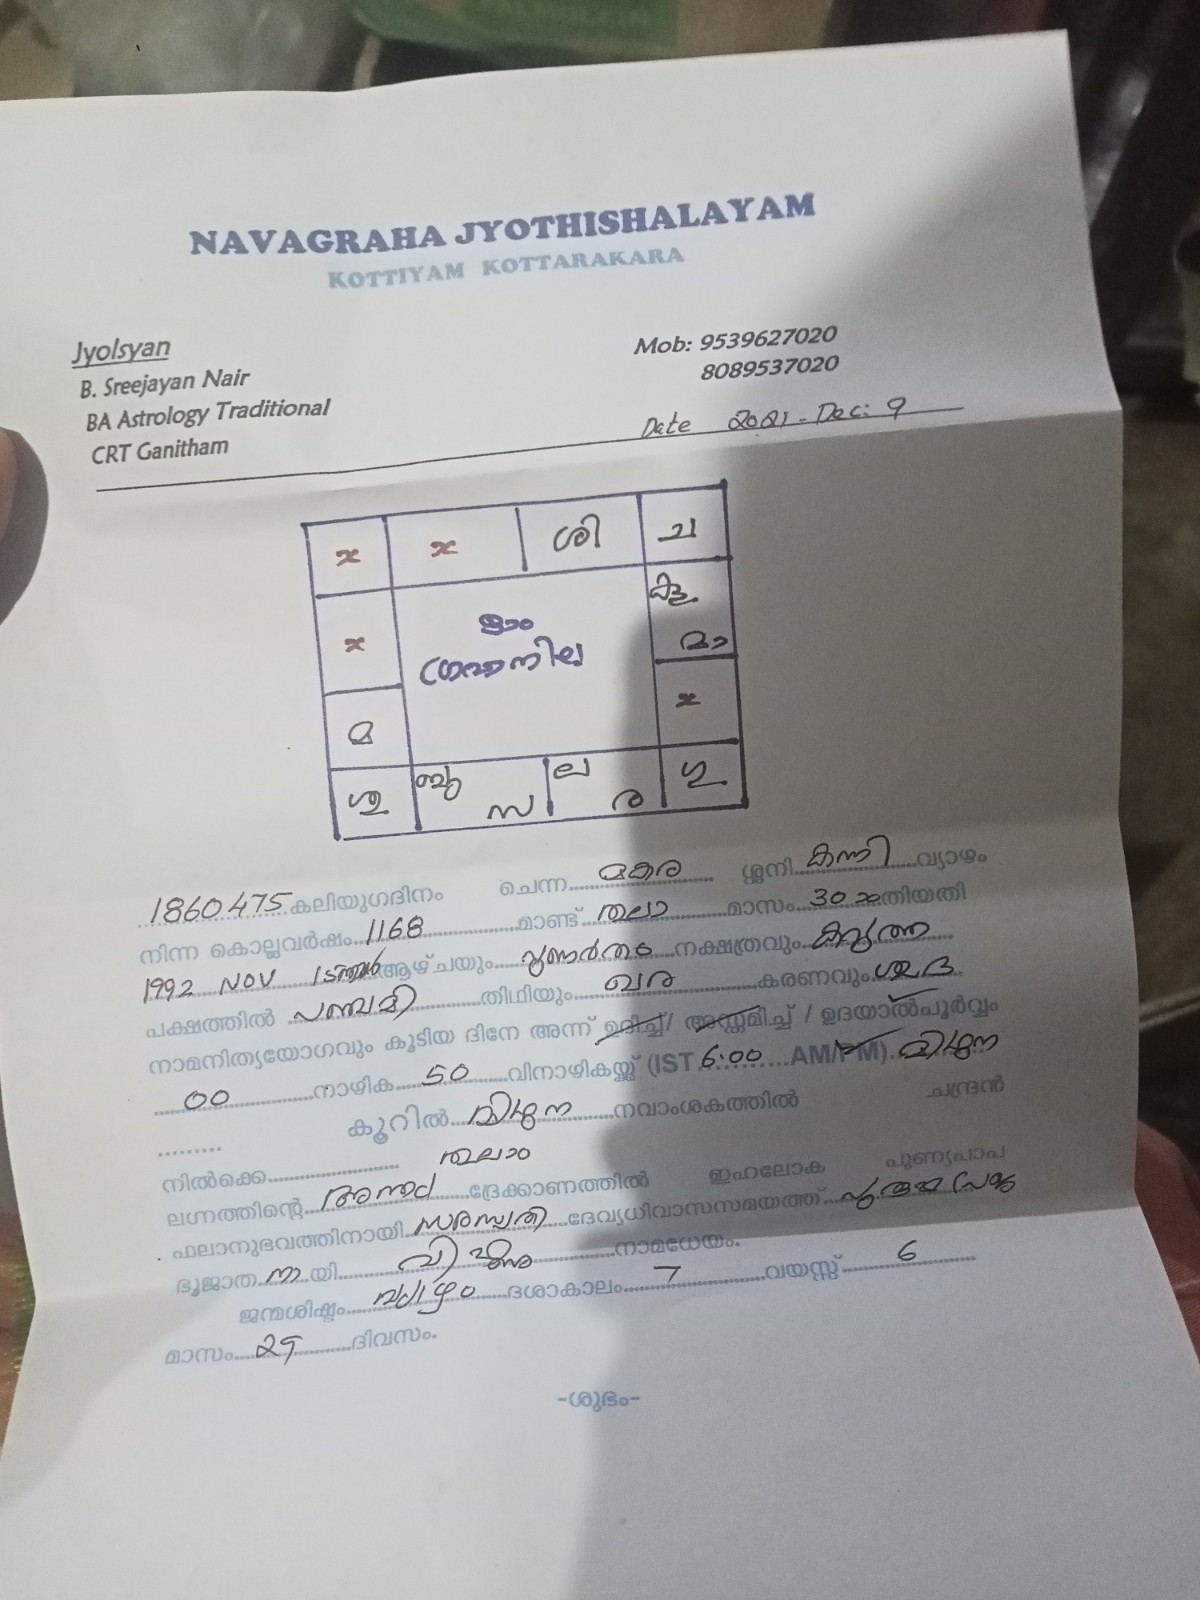 NAVAGRAHA JYOTHISHALAYAM
KOTTIYAM KOTTARAKARA
Jyolsyan
B. Sreejayan Nair
BA Astrology Traditional
CRT Ganitham
Mob: 9539627020
8089537020
Date 2021 - Dec: 9
x x ശി ച
കു
x മാ
ഗ്രഹനില
x
മ
ശു ബു സ ല ര ഗു
1860475 കലിയുഗദിനം ചെന്ന മകര ശ്ശനി കന്നി വ്യാഴം
നിന്ന കൊല്ലവർഷം 1168 മാണ്ട് തുലാ മാസം 30 തിയതി
1992 NOV 15 ആഴ്ചയും പുണർതം നക്ഷത്രവും കറുത്ത
പക്ഷത്തിൽ പഞ്ചമി തിഥിയും ഖര കരണവും
നാമനിത്യയോഗവും കൂടിയ ദിനേ അന്ന് ഉദിച്ച് / അസ്തമിച്ച് / ഉദയാൽപൂർവ്വം
00 നാഴിക 50 വിനാഴികയ്ക്ക് (IST 6:00 AM/PM) മിഥുന
കൂറിൽ മിഥുന നവാംശകത്തിൽ ചന്ദ്രൻ
നിൽക്കെ തുലാം
ലഗ്നത്തിന്റെ അന്ത്യ ദ്രേക്കാണത്തിൽ ഇഹലോക പുണ്യപാപ
ഫലാനുഭവത്തിനായി സരസ്വതി ദേവ്യധിവാസസമയത്ത് പുരുഷ പ്രജ
ഭൂജാത നാ യി നാമധേയം.
ജന്മശിഷ്ടം വ്യാഴം ദശാകാലം 7 വയസ്സ് 6
മാസം 29 ദിവസം.
-ശുഭം-